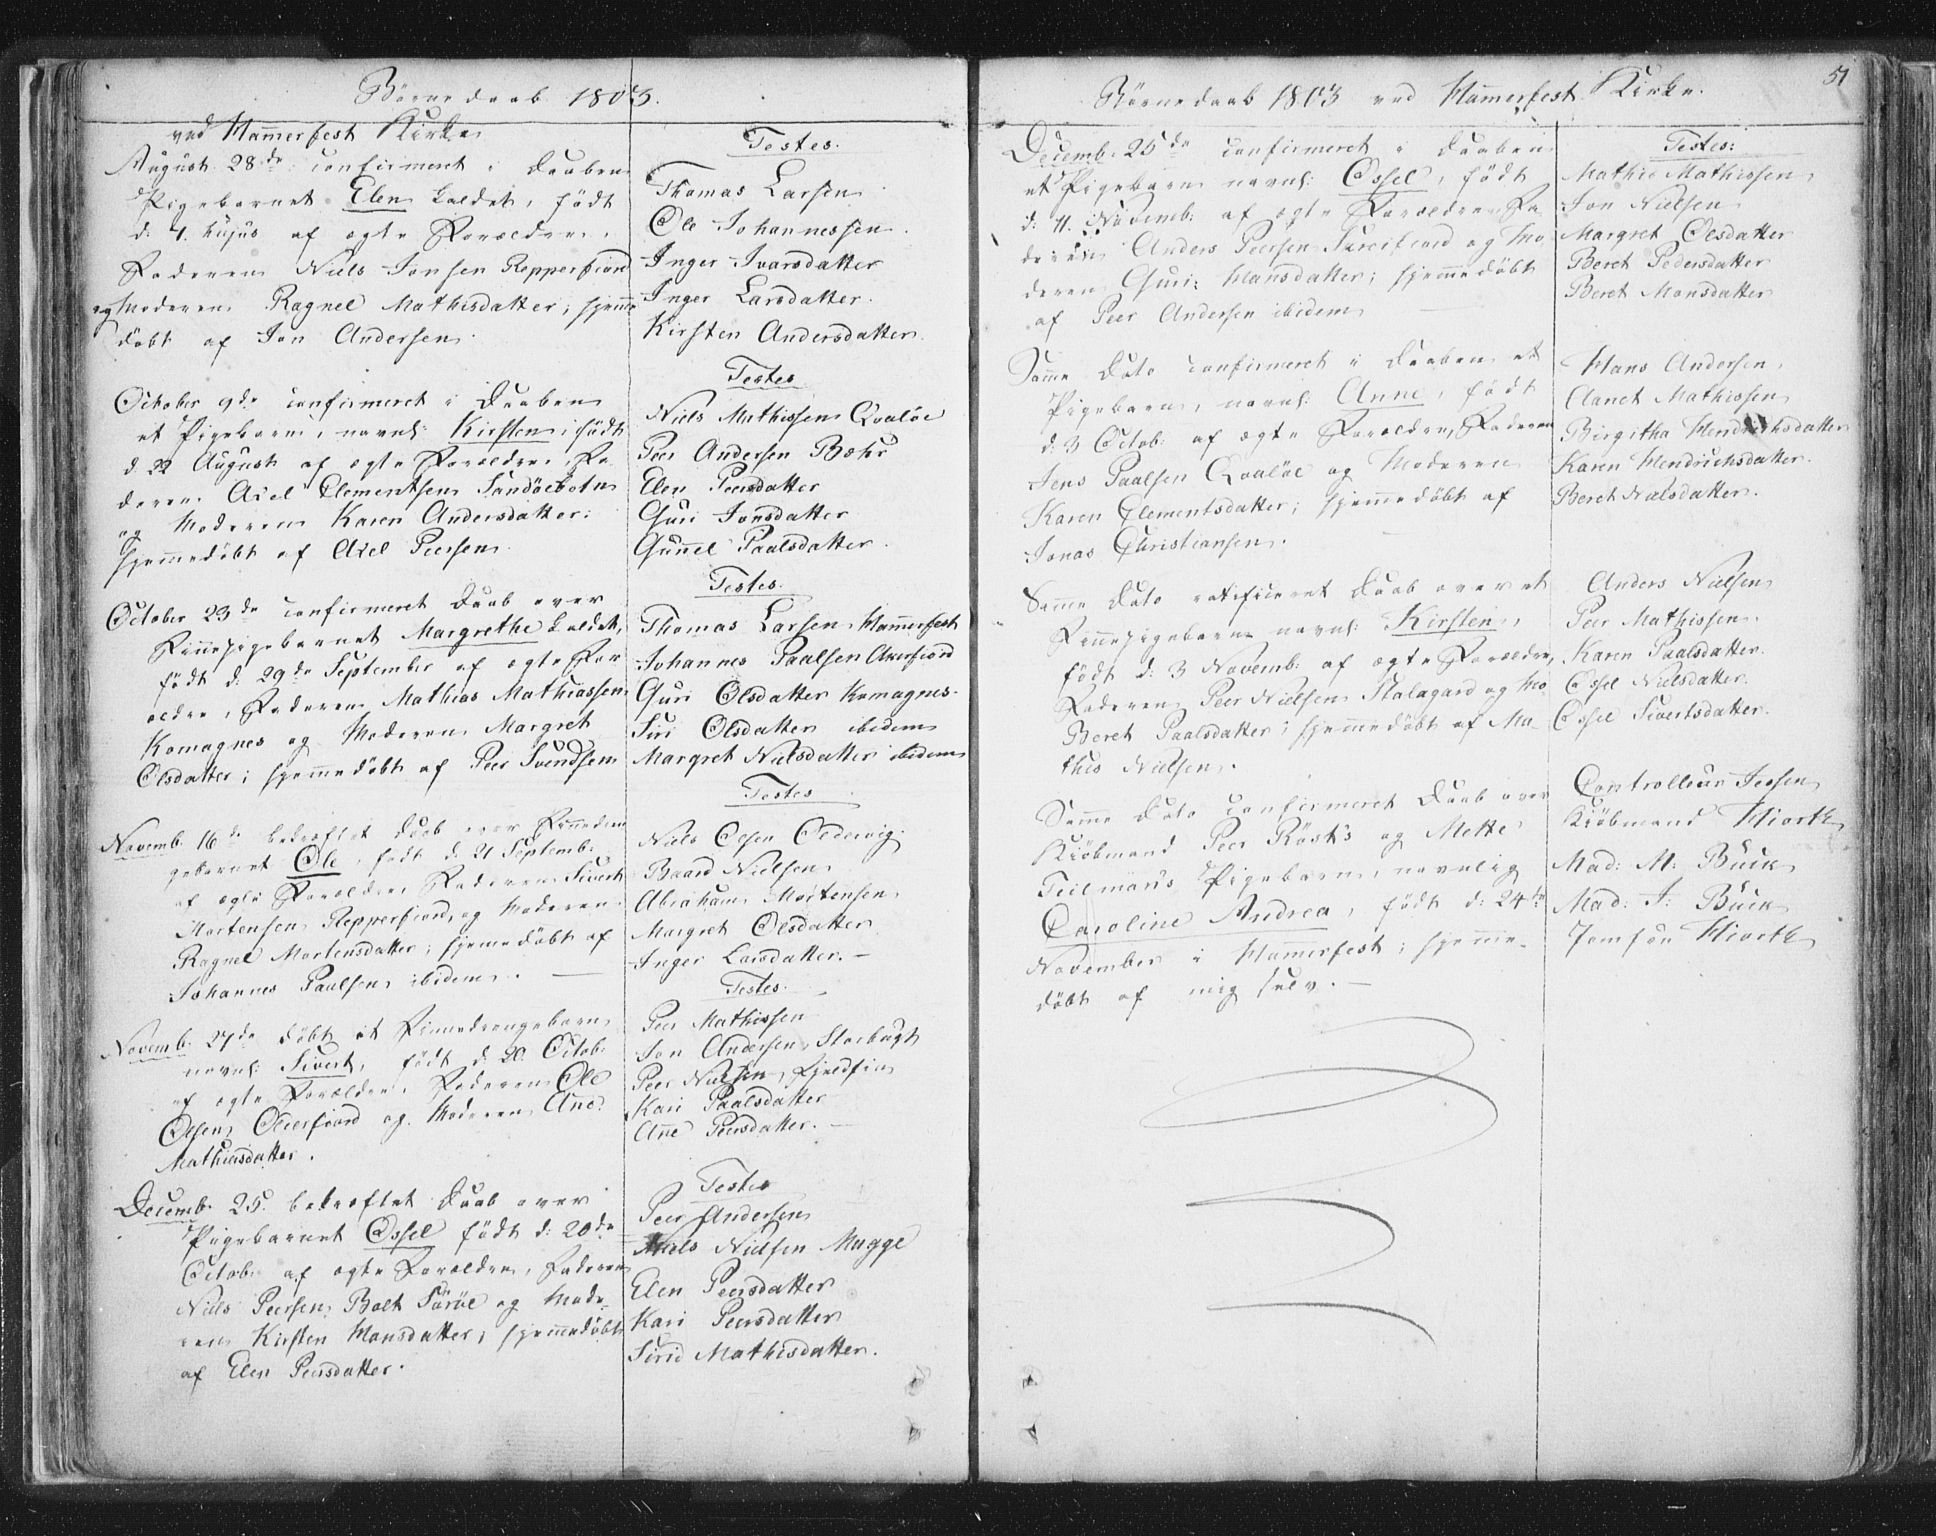 Børnedaab 1803.
ved Hamerfest Kirke
August 28de confirmeret i Daaben
Pigebarnet Elen kaldet, født
d: 1. hujus af ægte Forældre,
Faderen Niels Jonsen Repperfiord
og Moderen Ragnel Mathisdatter; hjemme
døbt af Jon Andersen.
Testes.
Thomas Larsen
Ole Johannessen.
Inger Ivarsdatter
Inger Larsdatter.
Kirsten Andersdatter
October 9de confirmeret i Daaben
et Pigebarn, navnl: Kirsten, født
d. 22 August af ægte Forældre, Fa
deren Axel Clementsen Sandøebotn
og Moderen Karen Andersdatter;
hjemmedøbt af Axel Peersen.
Testes
Niels Mathissen Qvaløe
Peer Andersen Bohr
Elen Peersdatter
Guri Jonsdatter
Gunnel Paalsdatter.
October 23de confirmeret Daab over
Finnepigebarnet Margrethe kaldet,
født d. 29de September af ægte For
ældre, Faderen Mathias Mathiassen
Komagnes og Moderen Margret
Olsdatter; hjemmedøbt af Peer Svendsen
Testes.
Thomas Larsen Hamerfest
Johannes Paalsen Akerfiord
Guri Olsdatter Komagnes.
Siri Olsdatter ibidem
Margret Nielsdatter ibidem
Novemb. 16de bekræftet Daab over Finnedren
gebarnet Ole, født d. 21 Septemb:
af ægte Forældre Faderen Sivert
Mortensen Repperfiord, og Moderen
Ragnel Mortensdatter; hjemmedøbt af
Johannes Paulsen ibidem.
Testes
Niels Olsen Oedervig.
Baard Nielsen
Abraham Mortensen
Margret Olsdatter
Inger Larsdatter.
Novemb. 27de døbt et Finnedrengebarn
navnl: Sivert, født d. 20. Octob:
af ægte Forældre, Faderen Ole
Olsen Olderfiord og Moderen Ane
Mathiasdatter.
Testes.
Peer Mathissen
Jon Andersen, Storbugt
Peer Nielsen, Fieldfin
Kari Paalsdatter
Ane Peersdatter.
Decemb. 25. bekræftet Daab over
Pigebarnet Ossel født d: 20de
Octob. af ægte Forældre, Faderen
Niels Peersen Bolt Sørøe og Mode
ren Kirsten Monsdatter; hjemmedøbt
af Elen Peersdatter.
Testes
Peer Andersen
Niels Nielsen Mugge
Elen Peersdatter
Kari Peersdatter
Sirid Mathisdatter.
51
Børnedaab 1803 ved Hamerfest Kirke.
Decemb: 25de confirmeret i Daaben
et Pigebarn navnl: Ossel, født
d. 11. Novemb: af ægte Forældre, Fa
deren Anders Peersen Sureifiord og Mo
deren Guri Hansdatter; hjemmedøbt
af Peer Andersen ibidem
Testes:
Mathis Mathissen
Jon Nielsen
Margret Olsdatter
Beret Pedersdatter
Beret Monsdatter
Samme Dato confirmeret i Daaben et
Pigebarn, navnl: Anne, født
d. 3 Octob: af ægte Forældre, Faderen
Jens Paalsen Qvaløe og Moderen
Karen Clementsdatter; hjemmedøbt af
Jonas Christiansen.
Hans Andersen,
Clanet Mathissen
Birgitha Hendrichsdatter
Karen Hendrichsdatter.
Beret Nielsdatter.
Samme Dato ratificeret Daab over et
Finnepigebarn navnl: Kirsten,
født d. 3 Novemb: af ægte Forældre,
Faderen Peer Nielsen Stalagard og Mo
Beret Paalsdatter; hjemmedøbt af Ma-
this Nielsen.
Anders Nielsen
Peer Mathissen.
Karen Paalsdatter.
Ossel Nielsdatter.
Ossel Sivertsdatter.
Samme Dato confirmeret Daab over
Kiøbmand Peer Røst's og Mette
Teilman's Pigebarn, navnlig
Caroline Andrea, født d. 24de
November i Hamerfest; hjemme-
døbt af mig selv.
Controlleur Jessen
Kiøbmand Hiorth
Mad: M. Buck
Mad: J: Buck
Jomfru Hiorth